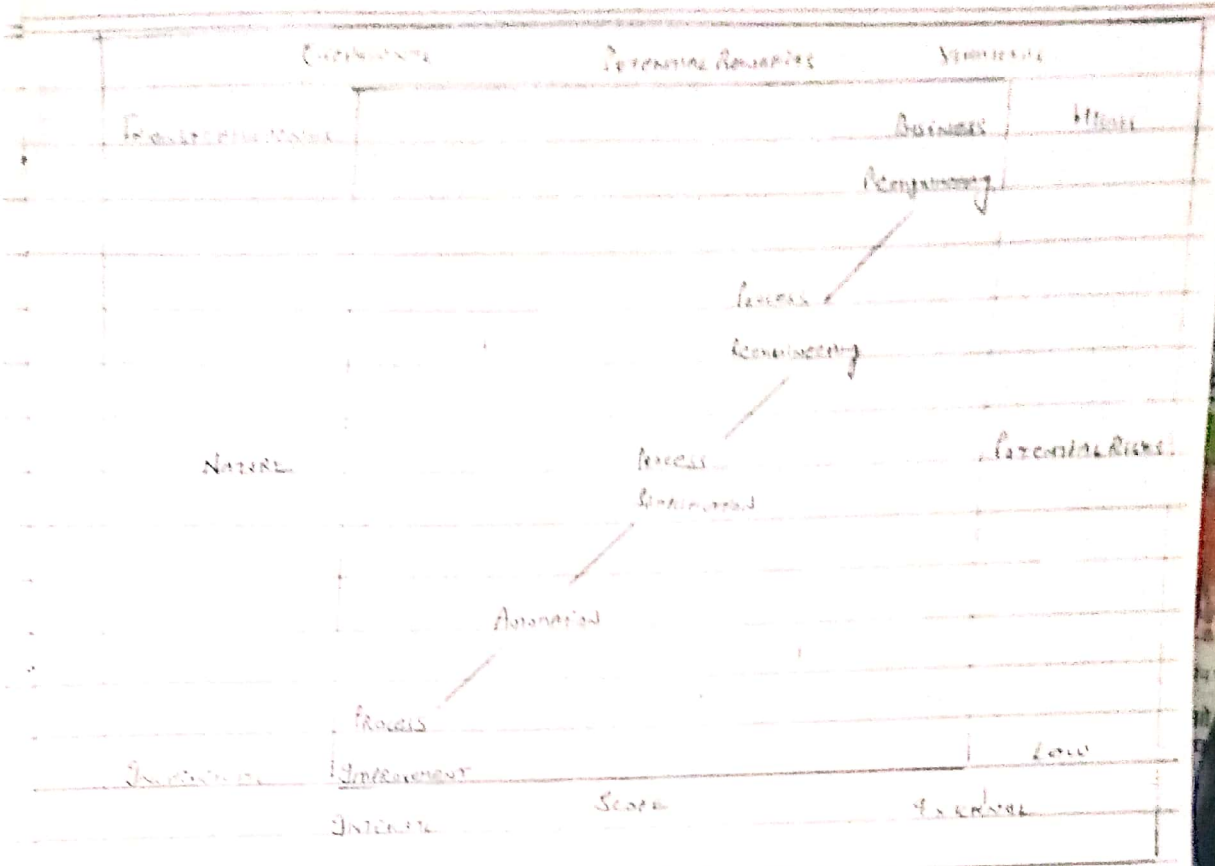 POTENTIAL REWARDS
BUSINESS
Reengineering
PROCESS
Reengineering
NATURE
PROCESS
POTENTIAL RISKS
AUTOMATION
PROCESS
LOW
IMPROVEMENT
SCOPE
EXTERNAL
INTERNAL